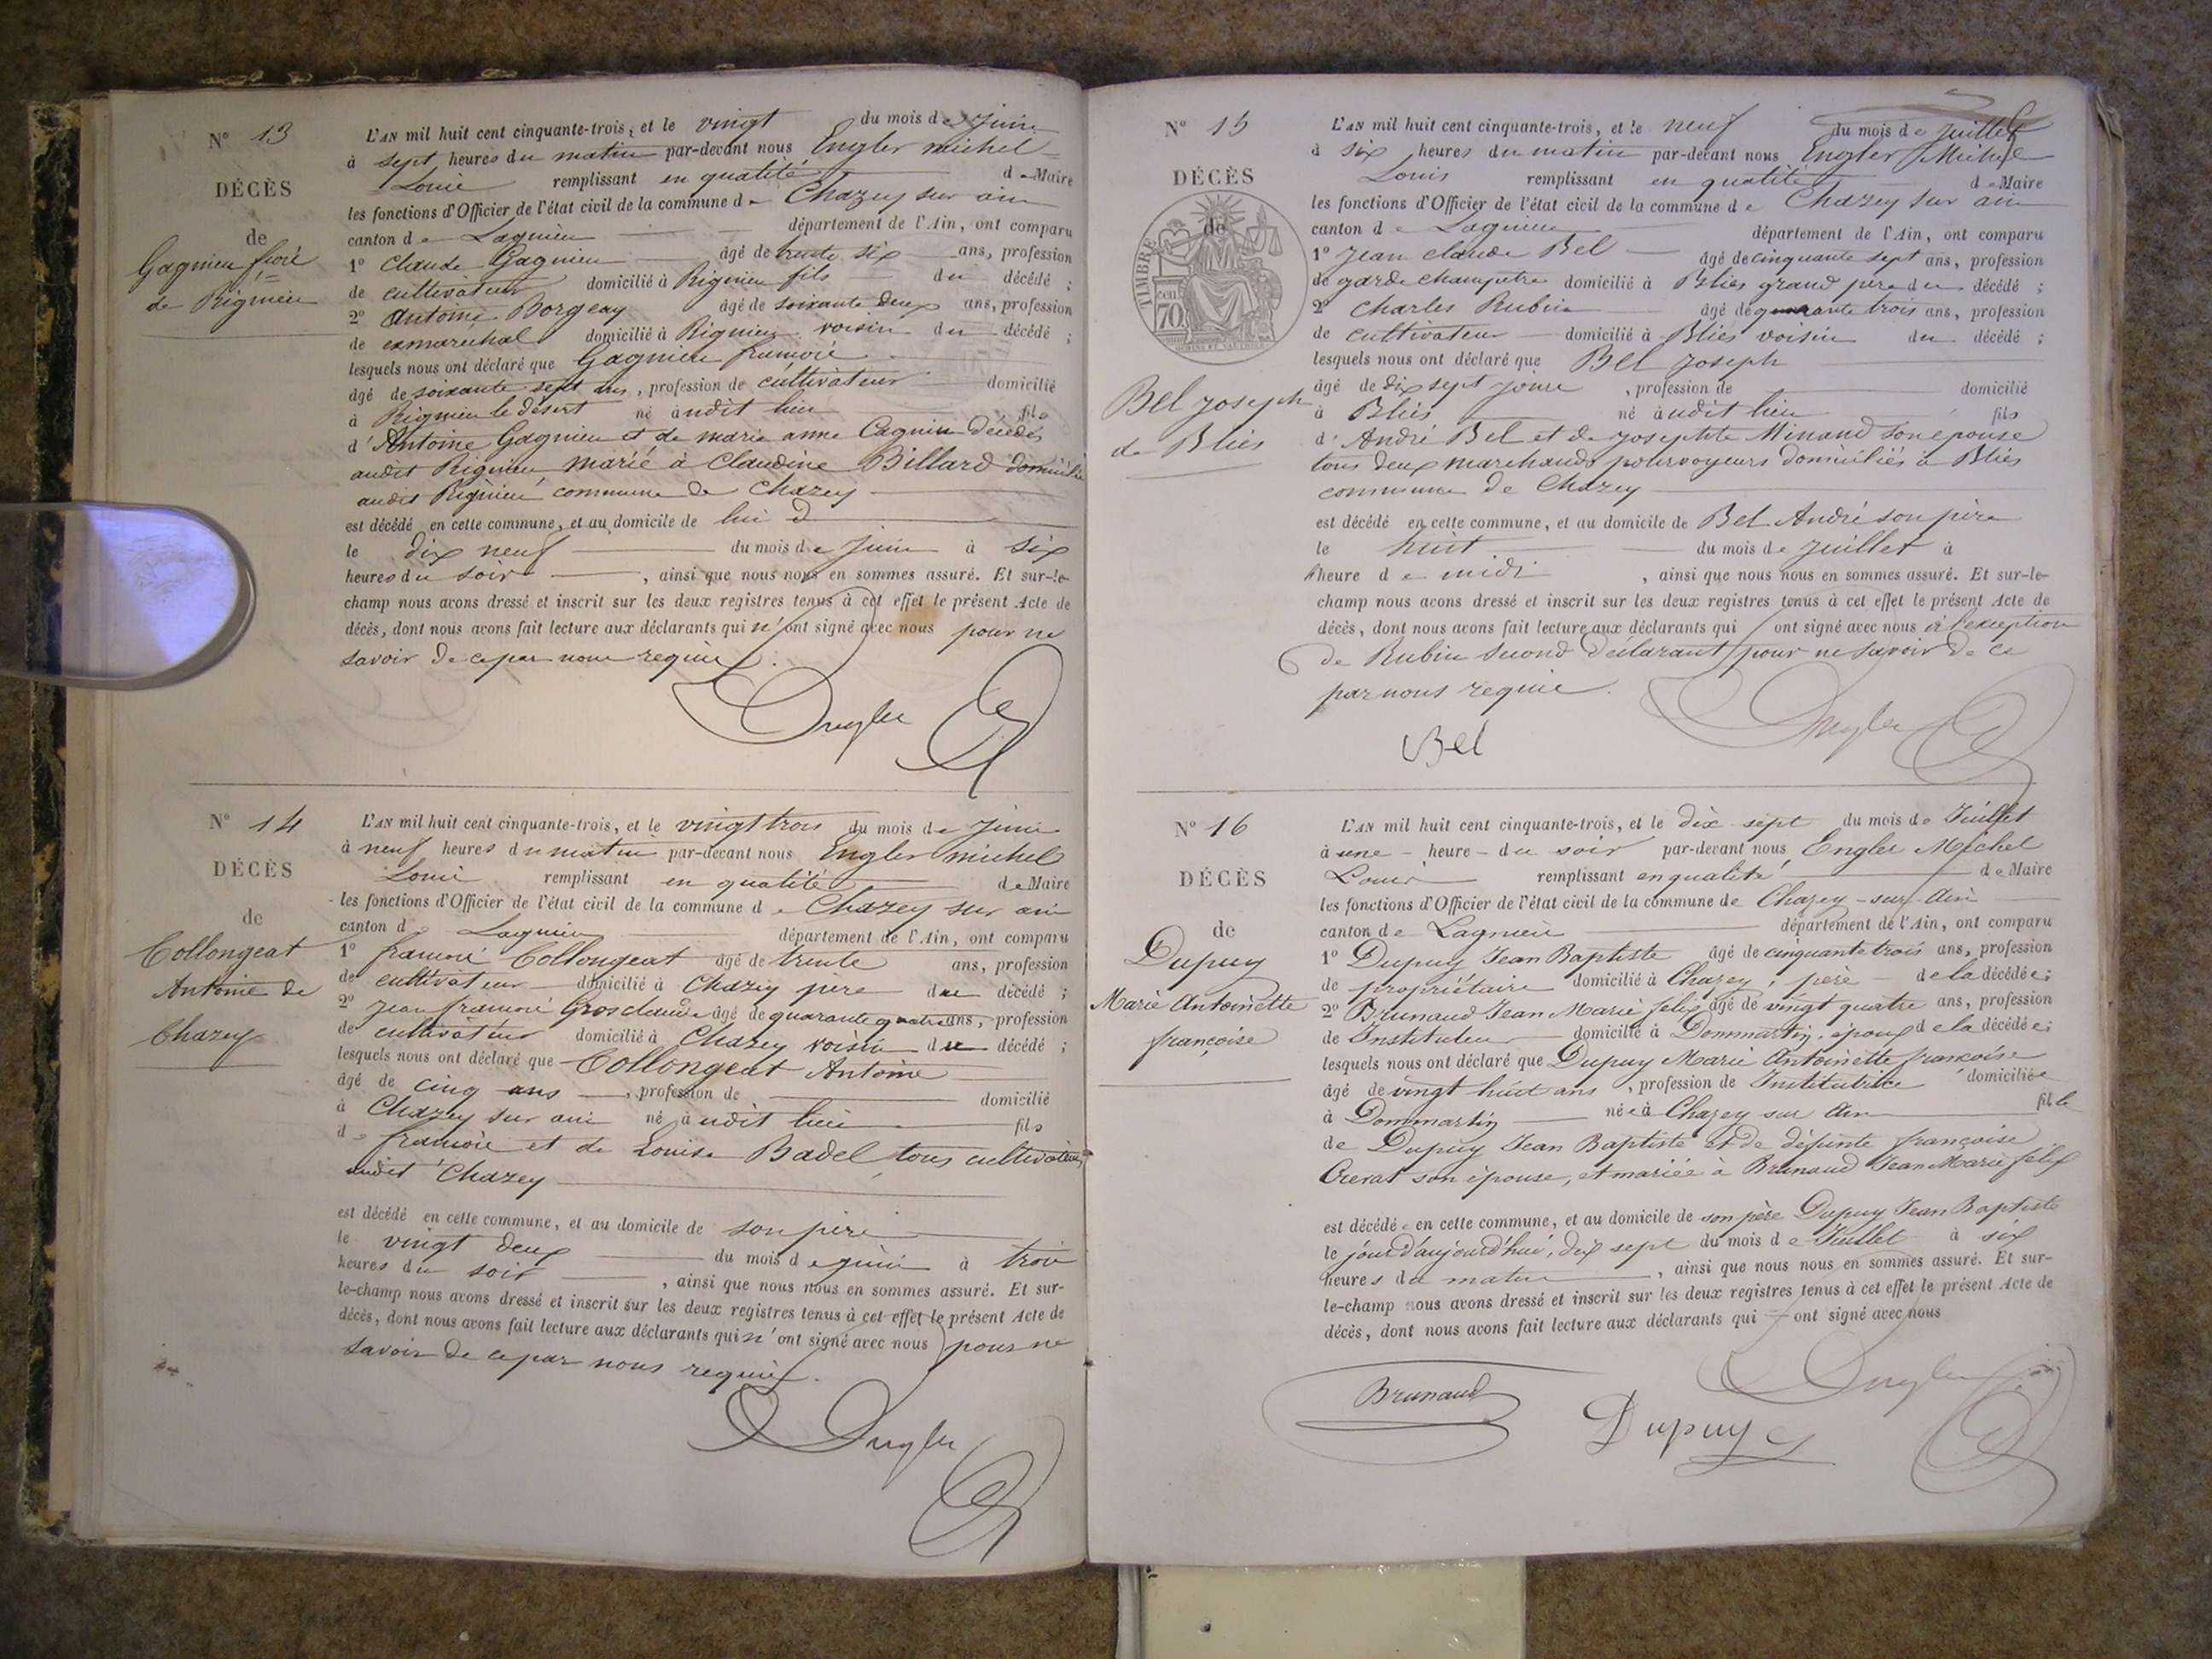 N° 13
DÉCÈS
de
Gagnieu
de Rignieu
L'AN mil huit cent cinquante-trois, et le vingt du mois de Juin
à sept heures du matin par-devant nous Engler michel
Louis remplissant en qualité de Maire
les fonctions d'Officier de l'état civil de la commune de Chazey sur ain
canton de Lagnieu département de l'Ain, ont comparu
1° Claude Gagnieu âgé de trente six ans, profession
de cultivateur domicilié à Rignieu fils du décédé ;
2° Antoine Borgeay âgé de soixante deux ans, profession
de exmaréchal domicilié à Rignieu voisin du décédé ;
lesquels nous ont déclaré que Gagnieu françois
âgé de soixante sept ans, profession de cultivateur domicilié
à Rignieu le désert né audit lieu fils
d'Antoine Gagnieu et de marie anne Cagnin décédés
audit Rignieu, marié à Claudine Billard domicilié
audit Rignieu commune de Chazey
est décédé en cette commune, et au domicile de lui d
le dix neuf du mois de Juin à six
heures du soir, ainsi que nous nous en sommes assuré. Et sur-le-
champ nous avons dressé et inscrit sur les deux registres tenus à cet effet le présent Acte de
décès, dont nous avons fait lecture aux déclarants qui n'ont signé avec nous pour ne
savoir de ce par nous requis.
Engler
N° 14
DÉCÈS
de
Collongeat
Antoine de
Chazey
L'AN mil huit cent cinquante-trois, et le vingt trois du mois de Juin
à neuf heures du matin par-devant nous Engler michel
Louis remplissant en qualité de Maire
les fonctions d'Officier de l'état civil de la commune de Chazey sur ain
canton de Lagnieu département de l'Ain, ont comparu
1° françois Collongeat âgé de trente ans, profession
de cultivateur domicilié à Chazey père du décédé ;
2° Jean françois Grosclaude âgé de quarante quatre ans, profession
de cultivateur domicilié à Chazey voisin du décédé ;
lesquels nous ont déclaré que Collongeat Antoine
âgé de cinq ans, profession de domicilié
à Chazey sur ain né audit lieu fils
de françois et de Louise Badel tous cultivateurs
audit Chazey
est décédé en cette commune, et au domicile de son père
le vingt deux du mois de juin à trois
heures du soir, ainsi que nous nous en sommes assuré. Et sur-
le-champ nous avons dressé et inscrit sur les deux registres tenus à cet effet le présent Acte de
décès, dont nous avons fait lecture aux déclarants qui n'ont signé avec nous pour ne
savoir de ce par nous requis.
Engler
N° 15
DÉCÈS
de
TIMBRE
70
Bel Joseph
de Bliès
L'AN mil huit cent cinquante-trois, et le neuf du mois de Juillet
à six heures du matin par-devant nous Engler Michel
Louis remplissant en qualité de Maire
les fonctions d'Officier de l'état civil de la commune de Chazey sur ain
canton de Lagnieu département de l'Ain, ont comparu
1° Jean claude Bel âgé de cinquante sept ans, profession
de garde champetre domicilié à Bliès grand père du décédé ;
2° Charles Rubin âgé de quarante trois ans, profession
de cultivateur domicilié à Bliès voisin du décédé ;
lesquels nous ont déclaré que Bel Joseph
âgé de dix sept jours, profession de domicilié
à Bliès né audit lieu fils
d'André Bel et de Josephte Minand son epouse
tous deux marchands pourvoyeurs domiciliés à Bliès
commune de Chazey
est décédé en cette commune, et au domicile de Bel André son père
le huit du mois de juillet à
heure de midi, ainsi que nous nous en sommes assuré. Et sur-le-
champ nous avons dressé et inscrit sur les deux registres tenus à cet effet le présent Acte de
décès, dont nous avons fait lecture aux déclarants qui ont signé avec nous à l'exception
de Rubin second déclarant pour ne savoir de ce
par nous requis.
Bel
Engler
N° 16
DÉCÈS
de
Dupuy
Marie Antoinette
françoise
L'AN mil huit cent cinquante-trois, et le dix sept du mois de Juillet
à une heure du soir par-devant nous Engler Michel
Louis remplissant en qualité de Maire
les fonctions d'Officier de l'état civil de la commune de Chazey-sur-Ain
canton de Lagnieu département de l'Ain, ont comparu
1° Dupuy Jean Baptiste âgé de cinquante trois ans, profession
de propriétaire domicilié à Chazey, père de la décédée ;
2° Brunaud Jean Marie felix âgé de vingt quatre ans, profession
de Instituteur domicilié à Dommartin, époux de la décédée ;
lesquels nous ont déclaré que Dupuy Marie Antoinette françoise
âgé de vingt huit ans, profession de Institutrice domiciliée
à Dommartin née à Chazey sur Ain fille
de Dupuy Jean Baptiste et de défunte françoise
son épouse, et mariée à Brunaud Jean Marie felix
est décédée en cette commune, et au domicile de son père Dupuy Jean Baptiste
le jour d'aujourd'hui, dix sept du mois de Juillet à six
heures du matin, ainsi que nous nous en sommes assuré. Et sur-
le-champ nous avons dressé et inscrit sur les deux registres tenus à cet effet le présent Acte de
décès, dont nous avons fait lecture aux déclarants qui ont signé avec nous
Engler
Brunaud
Dupuy